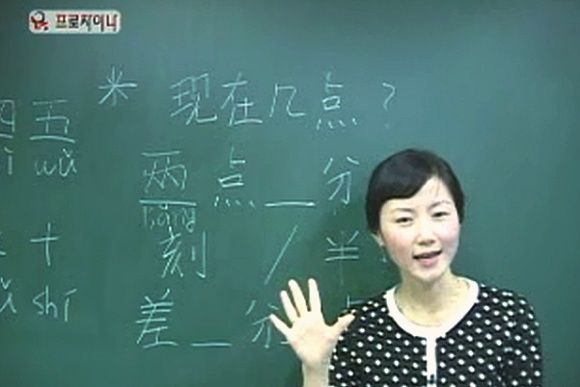 프로차이나
* 现在几点？
四 五
ì wǔ
两点__分
liǎng
十
shí
刻 / 半
差_分